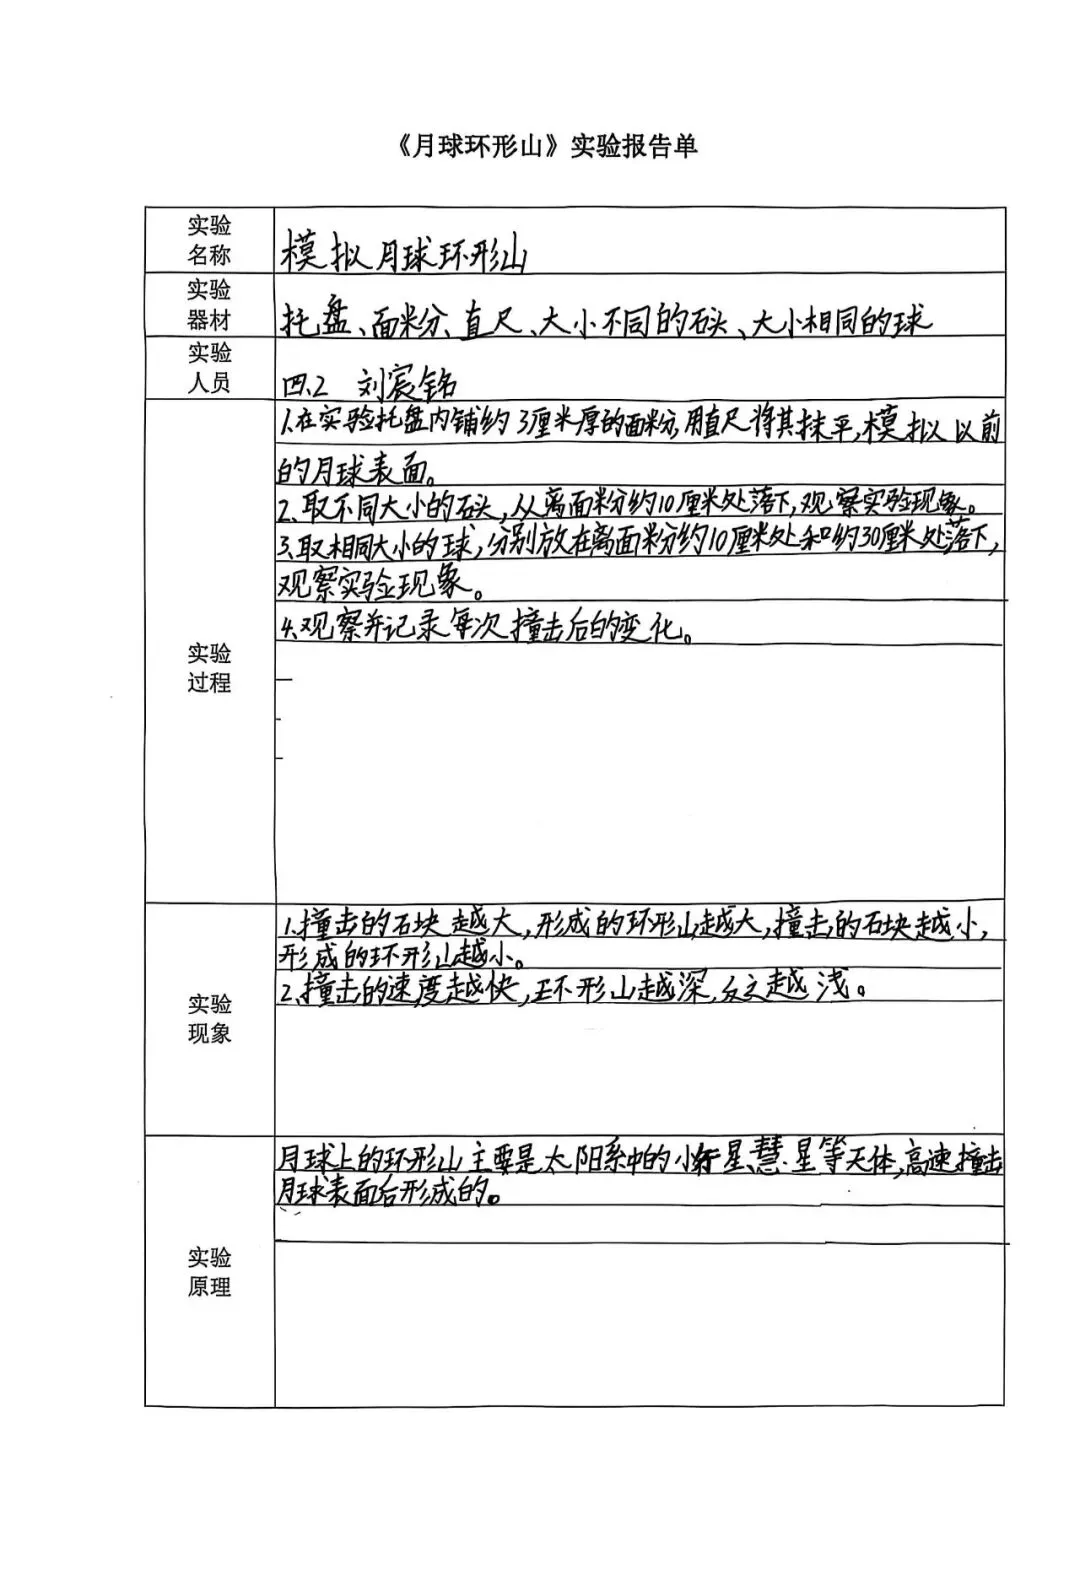 《月球环形山》实验报告单
实验
名称
模拟月球环形山
实验
器材
托盘、面米分、直尺、大小不同的石头、大小相同的球
实验
人员
四.2 刘宸铭
实验
过程
1.在实验托盘内铺约3厘米厚的面粉,用直尺将其抹平,模拟以前
的月球表面。
2.取不同大小的石头,从离面粉约10厘米处落下,观察实验现象。
3.取相同大小的球,分别放在离面粉约10厘米处和约30厘米处落下,
观察实验现象。
4.观察并记录每次撞击后的变化。
实验
现象
1.撞击的石块越大,形成的环形山越大,撞击的石块越小,
形成的环形山越小。
2.撞击的速度越快,环形山越深,反之越浅。
实验
原理
月球上的环形山主要是太阳系中的小行星、慧星等天体,高速撞击
月球表面后形成的。